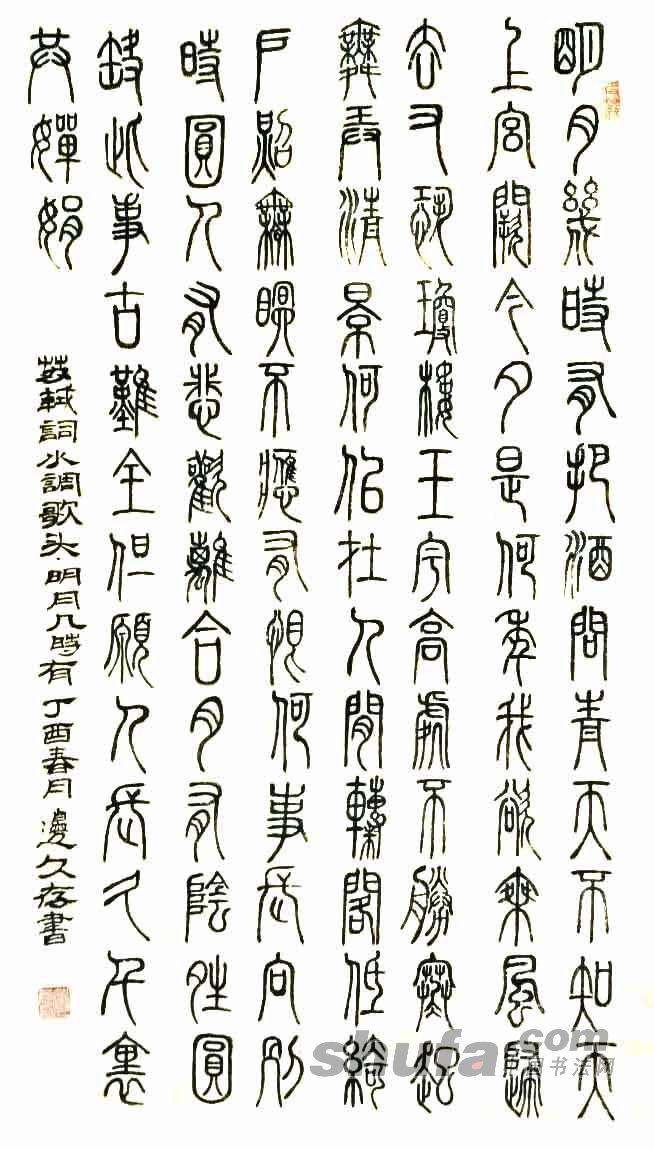 明月幾時有把酒問青天不知天
上宮闕今夕是何年我欲乘風歸
去又恐瓊樓玉宇高處不勝寒起
舞弄清景何似在人間轉閣低綺
戶照無眠不應有恨何事長向別
時圓人有悲歡離合月有陰晴圓
缺此事古難全但願人長久千裏
共嬋娟
蘇軾詞水調歌头明月几時有丁酉春月邊久存書
shufa.com
中国书法网